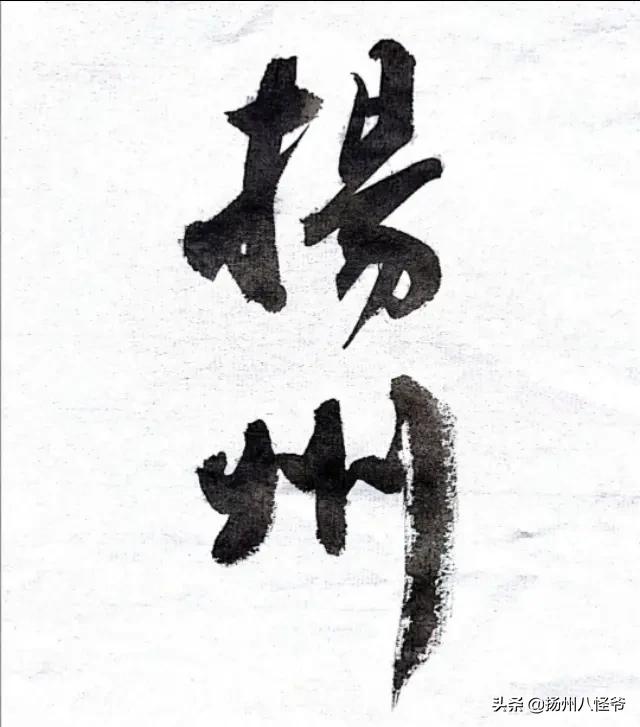 揚州
头条 @扬州八怪爷